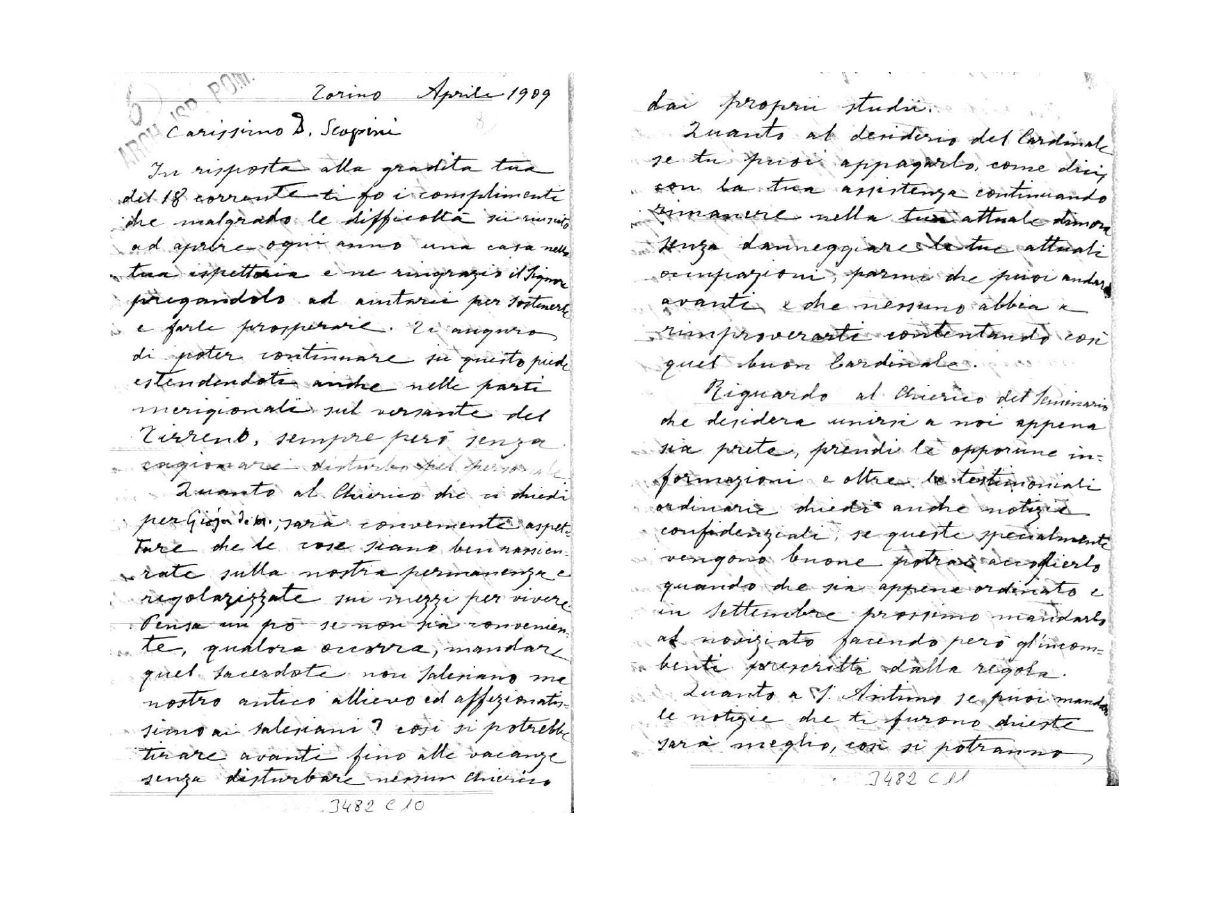 6
ARCH. ISP. POM.
Torino Aprile 1909
8
Carissimo D. Scapini
In risposta alla gradita tua
del 18 corrente ti fo i complimenti
che malgrado le difficoltà sei riuscito
ad aprire ogni anno una casa nella
tua ispettoria e ne ringrazio il Signore
pregandolo ad aiutarci per sostenerle
e farle prosperare. Ti auguro
di poter continuare su questo piede
estendendoti anche nelle parti
merigionali sul versante del
Tirreno, sempre però senza
cagionare disturbo nel personale
Quanto al Chierico che ci chiedi
per Gioja d. M., sarà conveniente aspet-
tare che le cose siano ben rassicu-
rate sulla nostra permanenza e
regolarizzate sui mezzi per vivere
Pensa un po se non sia convenien-
te, qualora occorra, mandare
quel sacerdote non Salesiano ma
nostro antico allievo ed affezionatis-
simo ai salesiani? così si potrebbe
tirare avanti fino alle vacanze
senza disturbare nessun chierico
3482 C 10
dai proprii studii.
Quanto al desiderio del Cardinale
se tu puoi appagarlo, come dici,
con la tua assistenza continuando
rimanere nella tua attuale dimora
senza danneggiare le tue attuali
occupazioni, parmi che puoi andare
avanti e che nessuno abbia a
rimproverarti contentando così
quel buon Cardinale.
Riguardo al Chierico del Seminario
che desidera unirsi a noi appena
sia prete, prendi le opporune in-
formazioni e oltre le testimoniali
ordinarie chiedi anche notizie
confidenziali, se queste specialmente
vengono buone potrai accoglierlo
quando che sia appena ordinato e
in Settembre prossimo mandarlo
al noviziato facendo però gl'incom-
benti prescritti dalla regola.
Quanto a S. Antimo se puoi mandar
le notizie che ti furono chieste
sarà meglio, così si potranno
3482 C 11